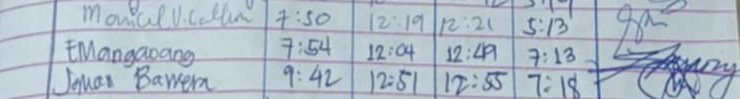 7:50 12:19 12:21 5:13
EMangaoang 7:54 12:04 12:49 7:13
Barrera 9:42 12:51 12:55 7:18